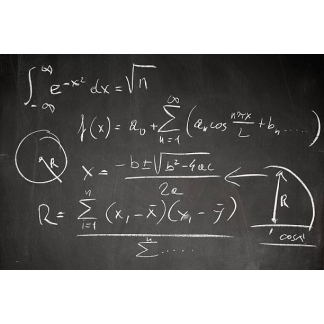 ∫_{-∞}^{∞} e^{-x²} dx = √n
f(x) = a₀ + ∑_{n=1}^{∞} (aₙ cos nπx/L + bₙ .....)
R
x = (-b ± √(b² - 4ac)) / 2a
R
R = ∑_{i=1}^{n} (x₁ - x̄)(y₁ - ȳ) / ∑^{n} .....